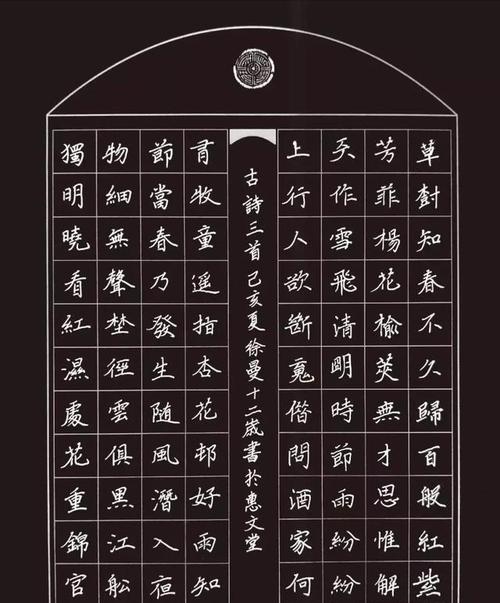 草樹知春不久歸百般紅紫
芳菲楊花榆莢無才思惟解
天作雪飛清明時節雨紛紛
上行人欲斷魂借問酒家何
古詩三首己亥夏徐曼十二歲書於惠文堂
有牧童遥指杏花邨好雨知
節當春乃發生随風潛入夜
物細無聲埜徑雲俱黑江船
獨明曉看紅濕處花重錦官